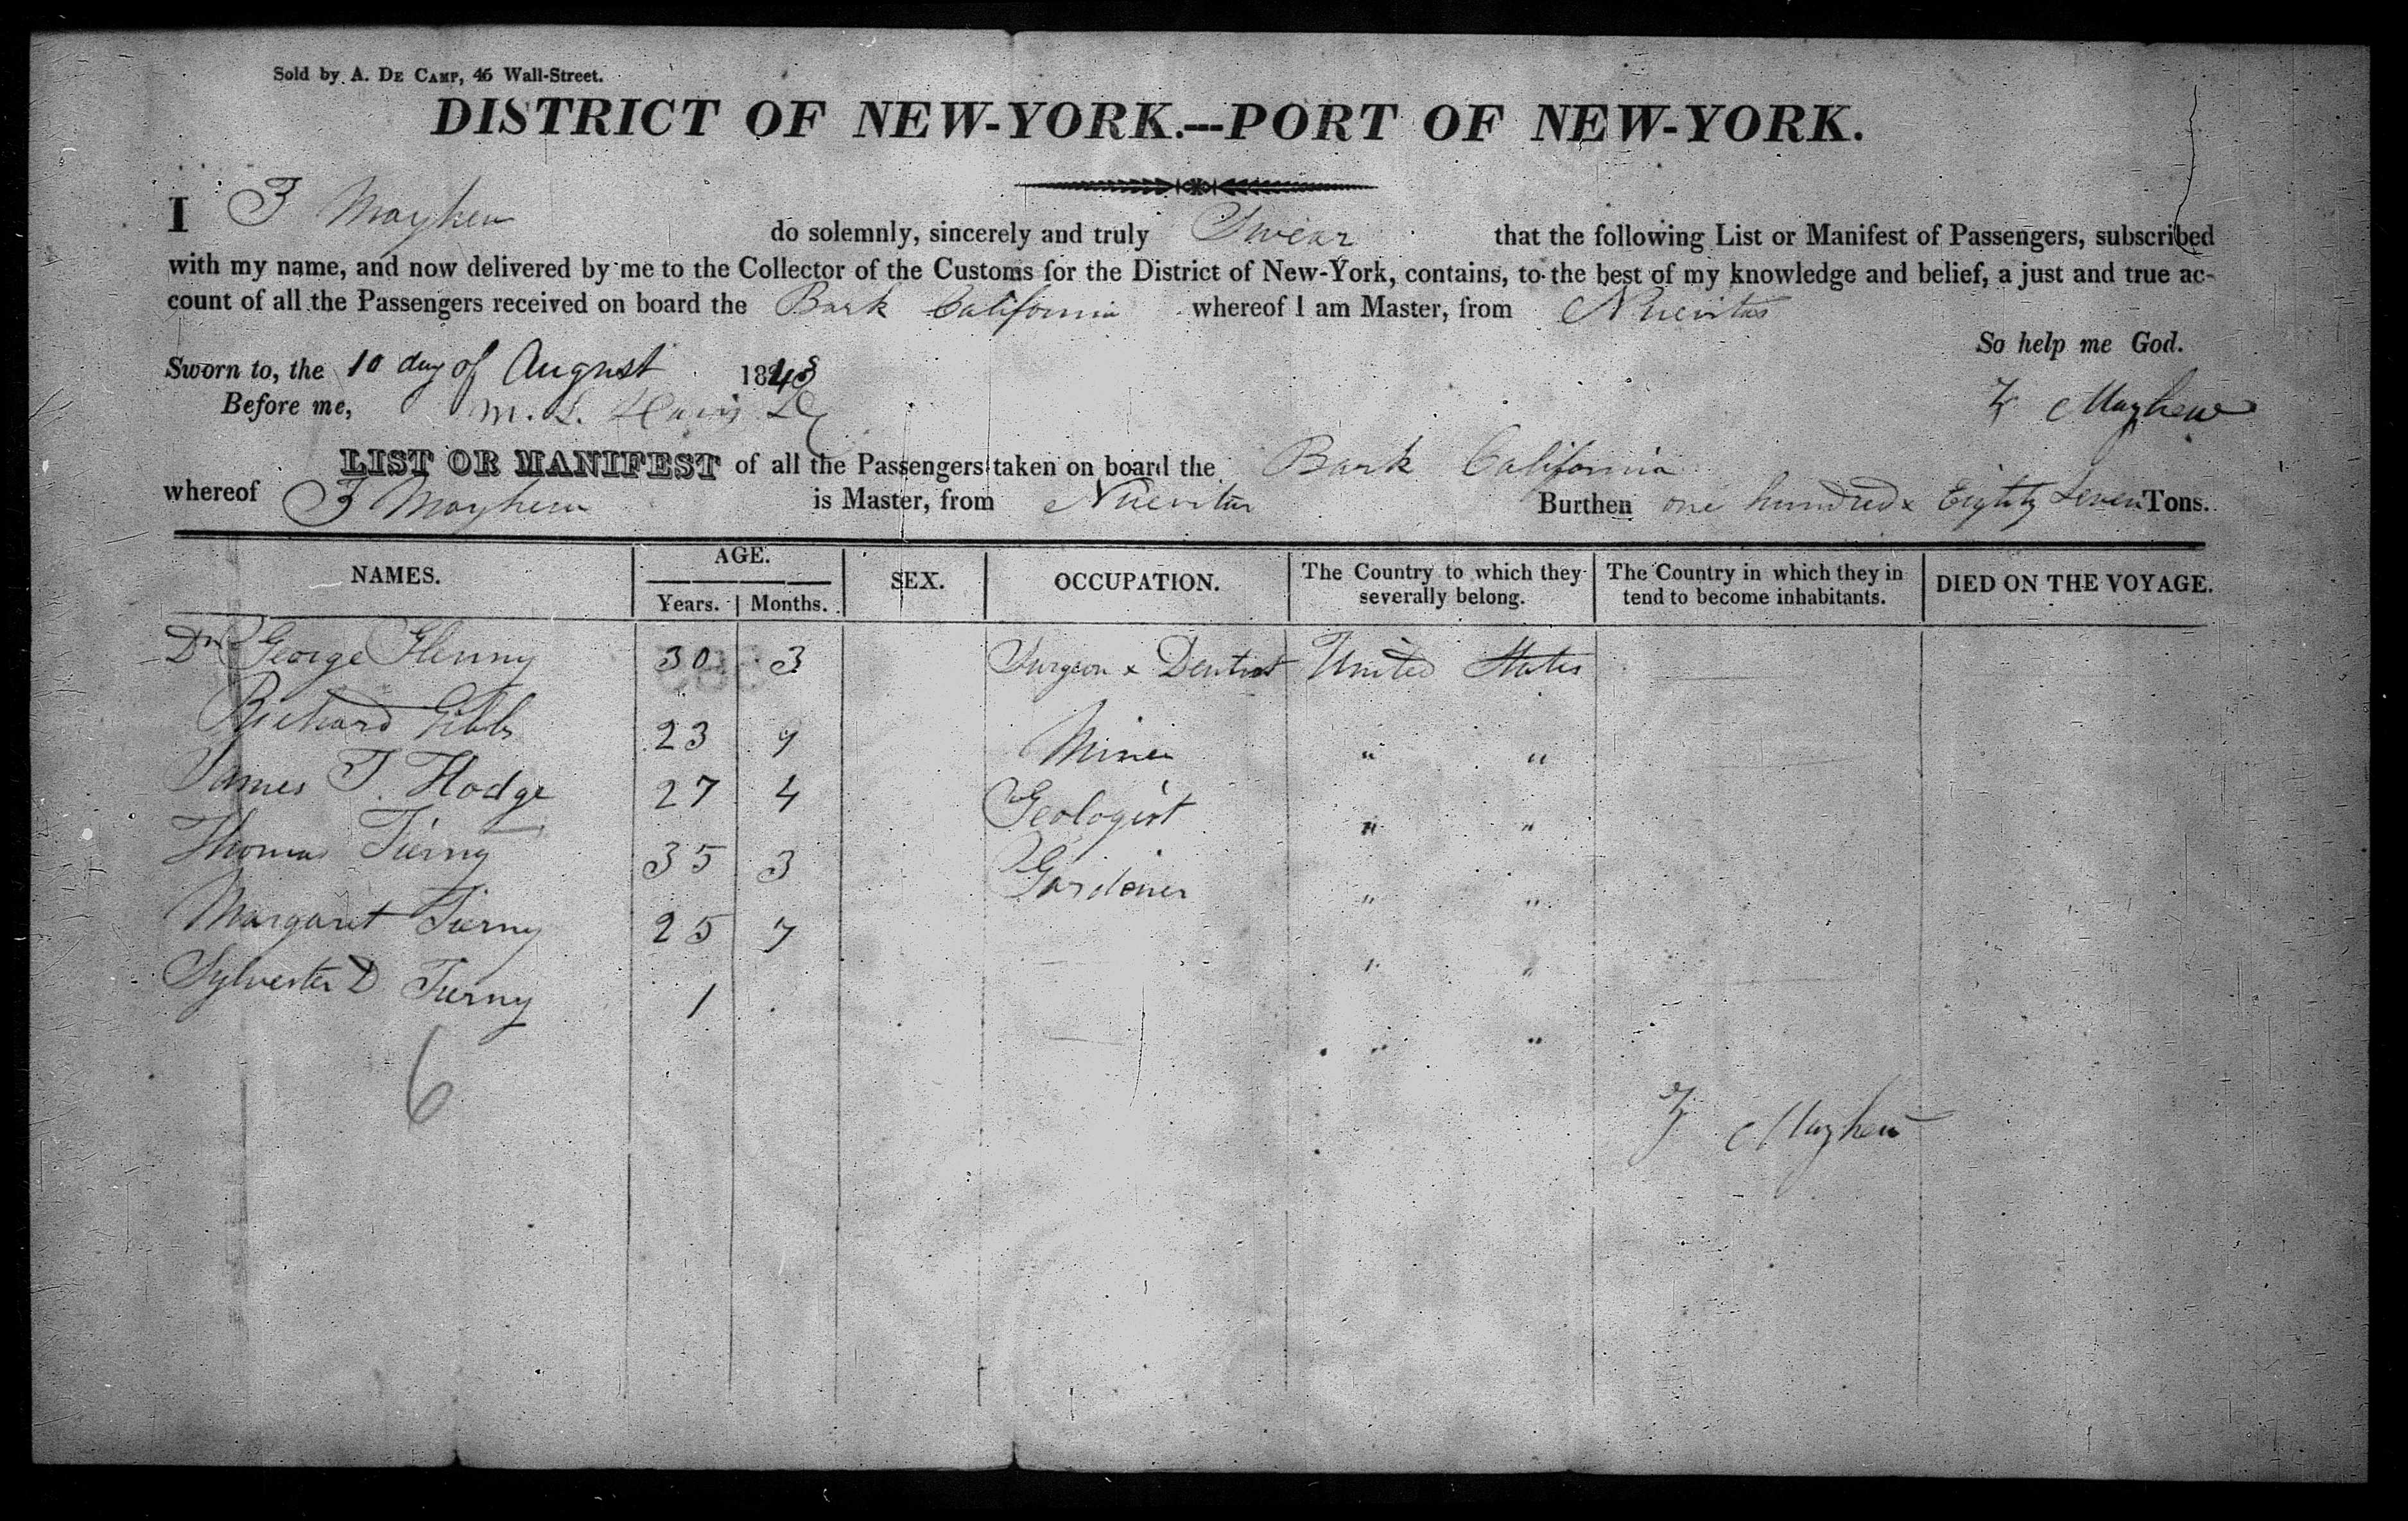 Sold by A. DE CAMP, 45 Wall-Street.
DISTRICT OF NEW-YORK.---PORT OF NEW-YORK.
I Mayhew do solemnly, sincerely and truly Swear that the following List or Manifest of Passengers, subscribed
with my name, and now delivered by me to the Collector of the Customs for the District of New-York, contains, to the best of my knowledge and belief, a just and true ac-
count of all the Passengers received on board the Bark California whereof I am Master, from Nuevitas
So help me God.
Sworn to, the 10 day of August 1843
Before me, M. L. Davis Mayhew
LIST OR MANIFEST of all the Passengers taken on board the Bark California
whereof Mayhew is Master, from Nuevitas Burthen one hundred & Eighty Seven Tons.
NAMES. AGE. SEX. OCCUPATION. The Country to which they severally belong. The Country in which they in tend to become inhabitants. DIED ON THE VOYAGE.
Years. Months.
Dr George 30 3 Surgeon & Dentist United States
Richard Gibbs 23 9 Miner " "
James T. Hodge 27 4 Geologist " "
Thomas Tierny 35 3 Gardener " "
Margaret Tierny 25 7 " "
Sylvester D Tierny 1 " "
6
Mayhew